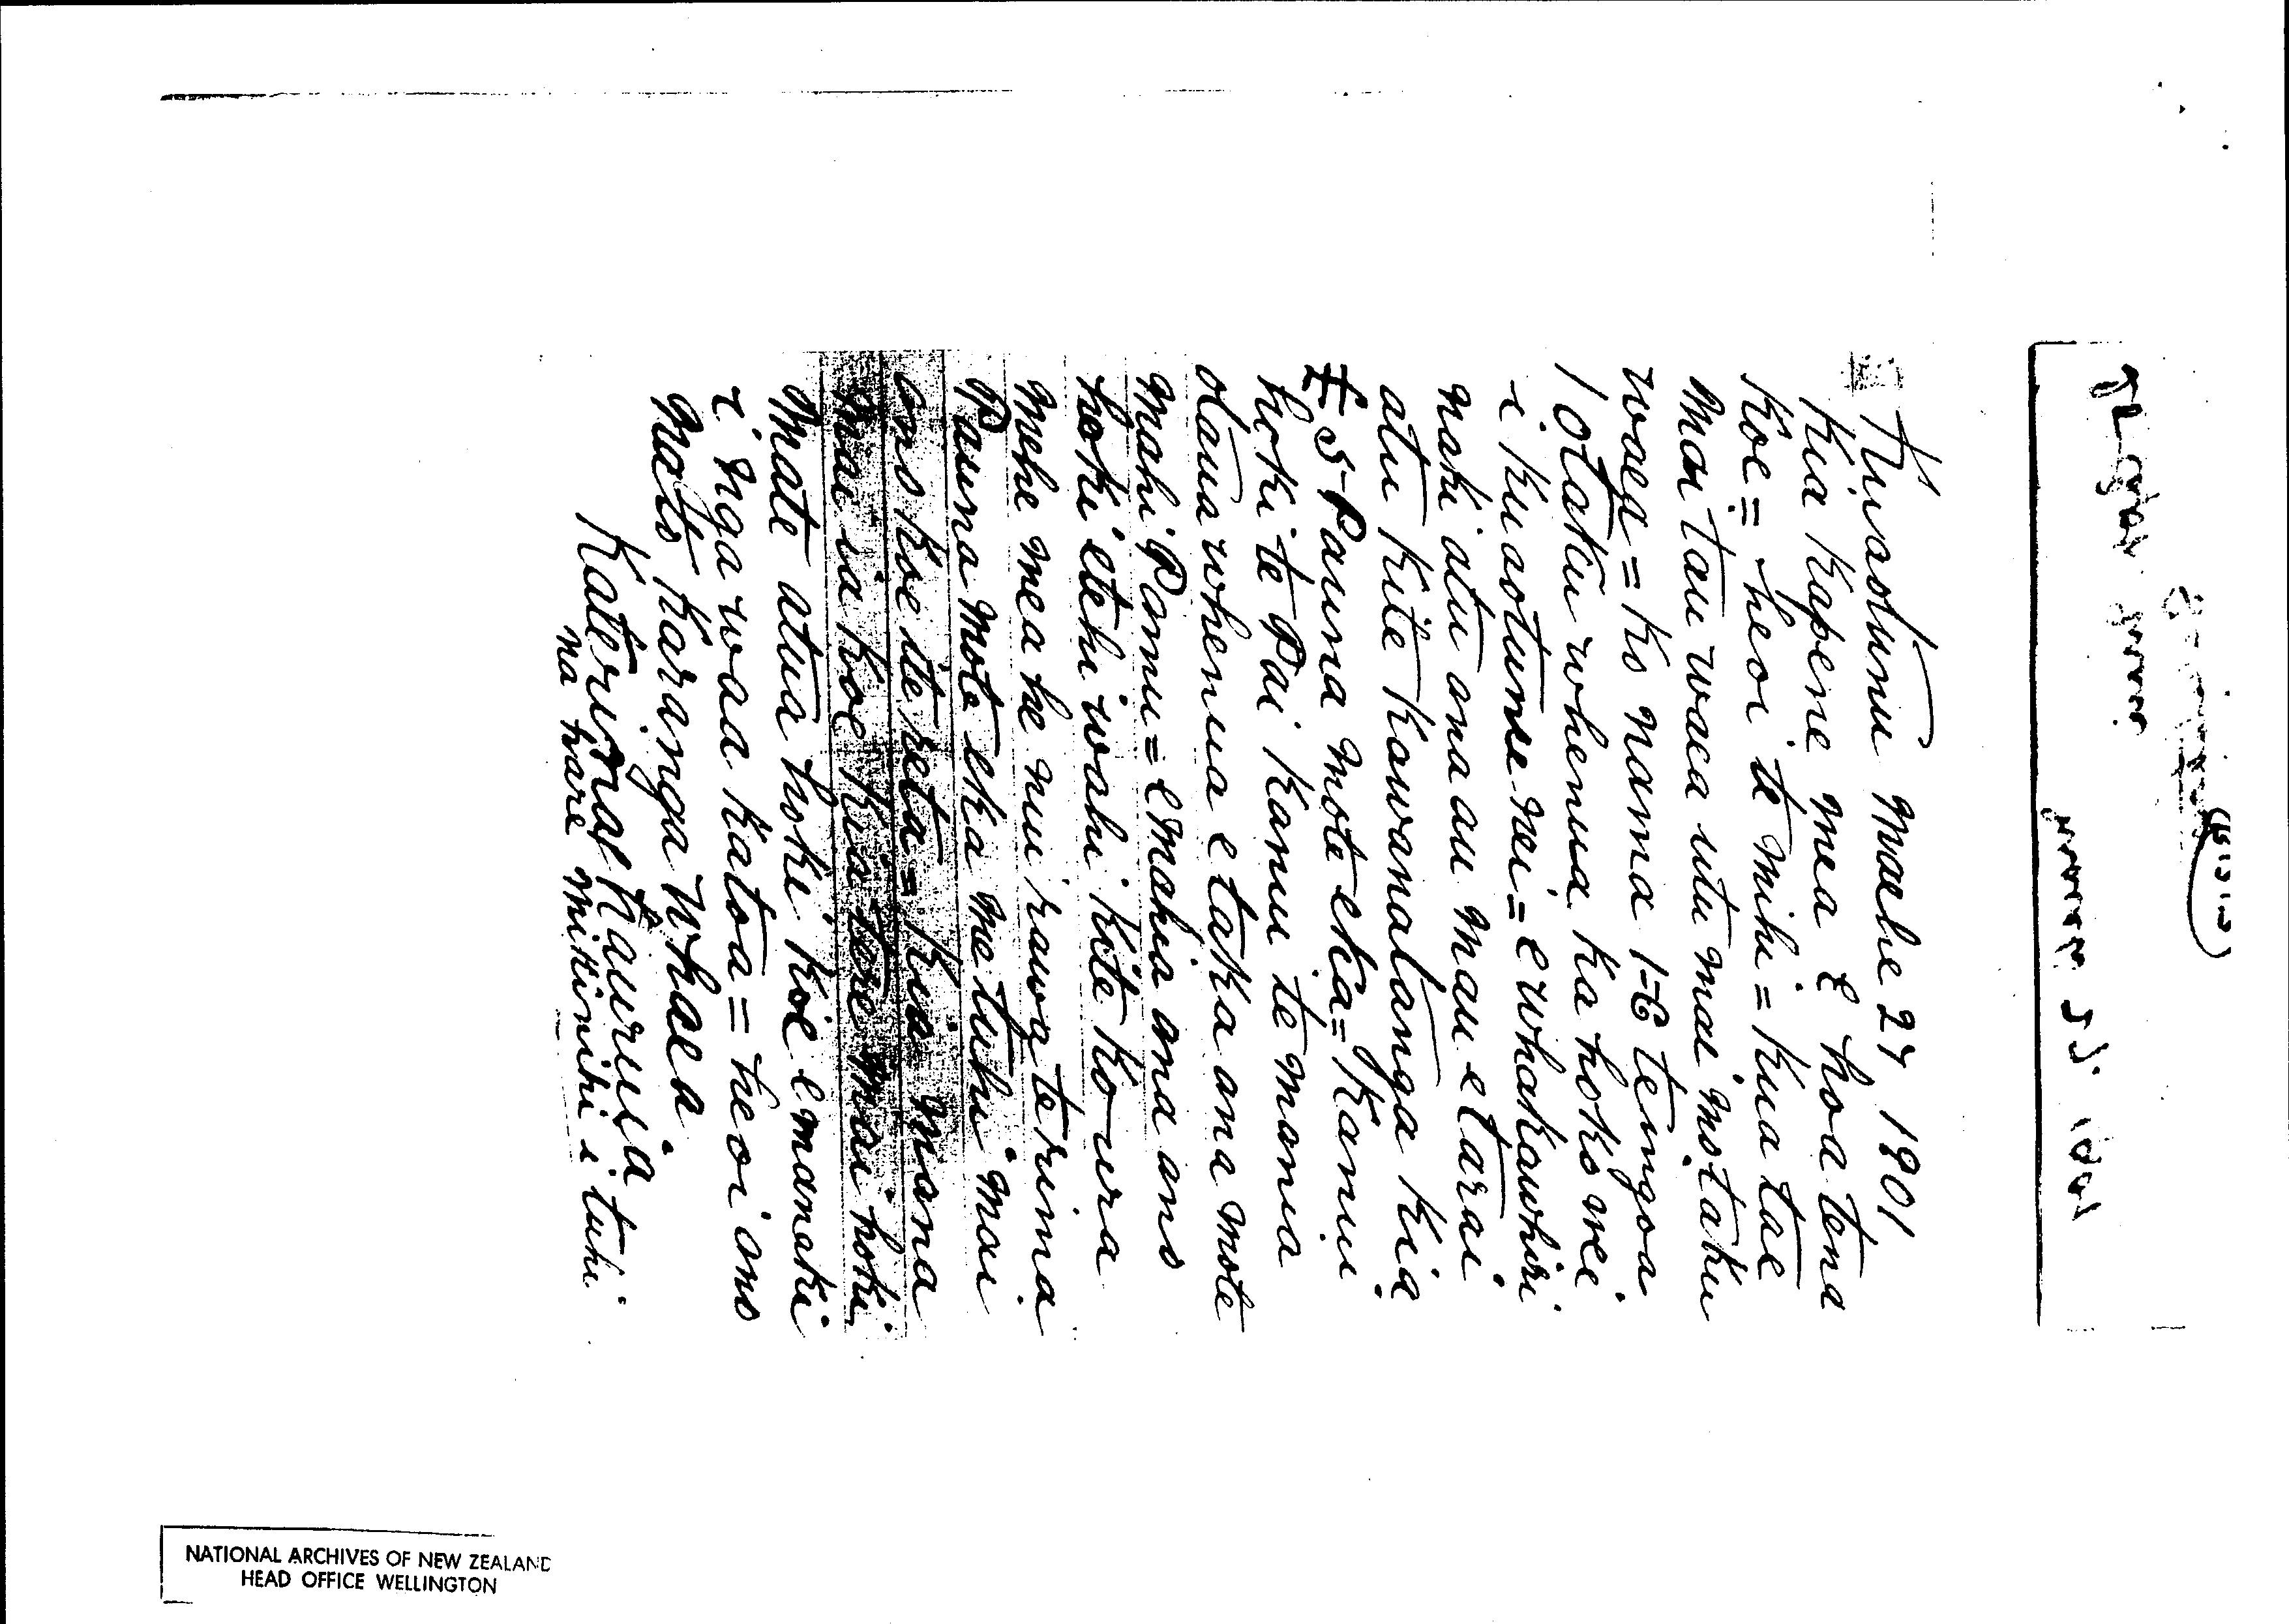 Kuaotunu Maehe 27 1901
Kia Kapene mea E hoa tena
Koe = heoi te mihi = Kua tae
Mai tau waea utu mai mo taku
waea = Ko nama 1-6 te ingoa
1 otaku whenua Ka hoko nei
i Kuaotunu nei = e whakawhiri
naki atu ana au mau e tarai
atu Kite Kawanatanga Kia
£5 Pauna mote eka = Kanui
hoki te Pai Kanui te mania
otaua whenua e taka ana mote
mahi Pamu = e mahia ana ano
hoki etehi wahi Kite Ko ura
mehe mea he nui rawa te rima
Pauna mote eka me tuhi mai
ano Koe ite reta = Kia mana
mai ia Koe Kia tere mai hoki
Mate atua hoki Koe e manaki
i nga waa Katoa = heoi ano
na to Karanga Whaea
Katerina Kauruia
na hare mikinihi i tuhi
NATIONAL ARCHIVES OF NEW ZEALAND
HEAD OFFICE WELLINGTON